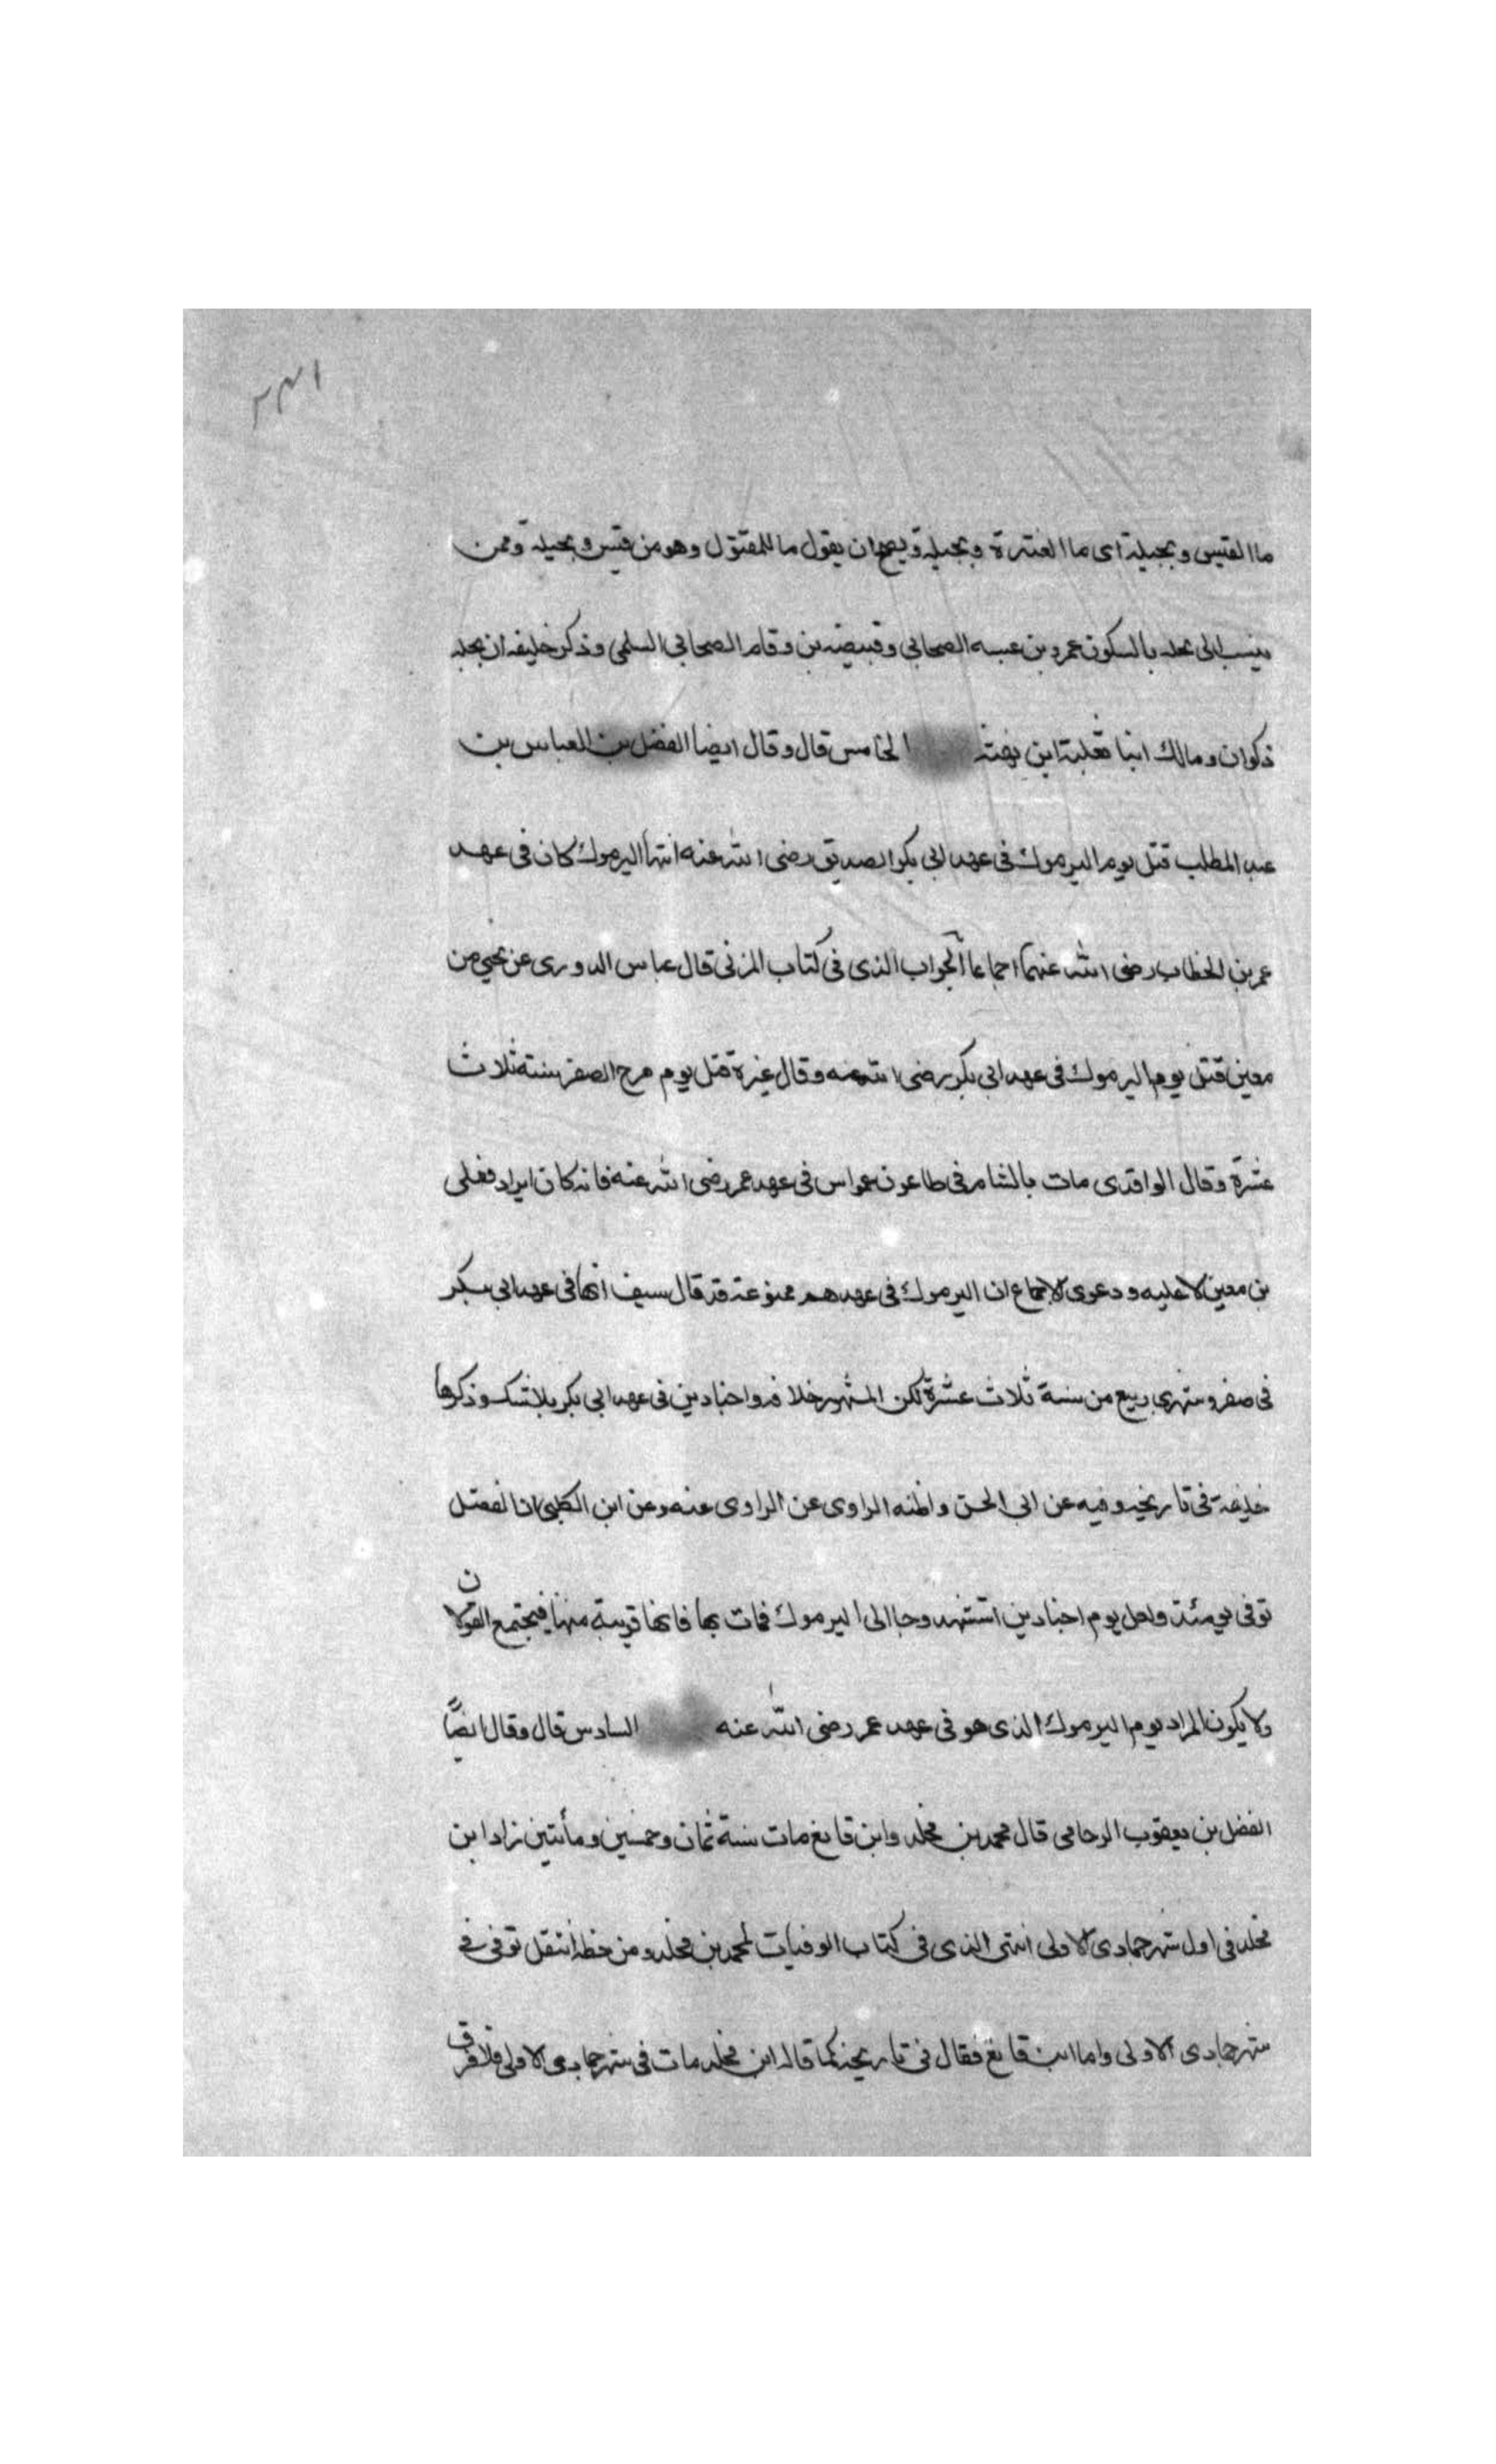 ١٣٢
ما القيس وبجيلة اى ما العنترة وبجيلة ويصح ان يقول ما للمقتول وهو من قيس وبجيلة وممن
ينسب الى بجله بالسكون عمرو بن عبسه الصحابي وقبيصة بن وقاص الصحابي السلمى وذكر خليفه ان بجله
ذكوان ومالك ابنا ثعلبة ابن بهثة الخامس قال وقال ايضا الفضل بن العباس بن
عبد المطلب قتل يوم اليرموك فى عهد ابى بكر الصديق رضى الله عنه انتها اليرموك كان فى عهد
عمر بن الخطاب رضى الله عنهما اجماعا الجواب الذى فى كتاب المزنى قال عباس الدورى عن يحيي من
معين قتل يوم اليرموك فى عهد ابى بكر رضى الله عنه وقال غيرة قتل يوم مرج الصفر سنة ثلاث
عشرة وقال الواقدى مات بالشام فى طاعون عمواس فى عهد عمر رضى الله عنه فانه كان ايراد فعلى
بن معين لا عليه ودعوى الاجماع ان اليرموك فى عهدهم ممنوعة قد قال سيف انها فى عهد ابى بكر
فى صفر وشهرى ربيع من سنة ثلاث عشرة لكن المشهور خلافه واجنادين فى عهد ابى بكر بلا شك وذكرها
خليفة فى تاريخه وفيه عن ابى الحسن واظنه الراوى عن الراوى عنه وعن ابن الكلبى ان الفضل
توفى يومئذ ولعل يوم اجنادين استشهد وجا الى اليرموك فمات بها فانها قريبة منها فيجتمع القولان
ولا يكون المراد يوم اليرموك الذى هو فى عهد عمر رضى الله عنه السادس قال وقال ايضًا
الفضل بن يعقوب الرخامى قال محمد بن مخلد وابن قانع مات سنة ثمان وخمسين ومأتين زاد ابن
مخلد فى اول شهر جمادى الاولى انتهى الذى فى كتاب الوفيات لمحمد بن مخلد ومن خطه انتقل توفى فى
شهر جمادى الاولى واما ابن قانع فقال فى تاريخه كما قاله ابن مخلد مات فى شهر جمادى الاولى فلا فرق